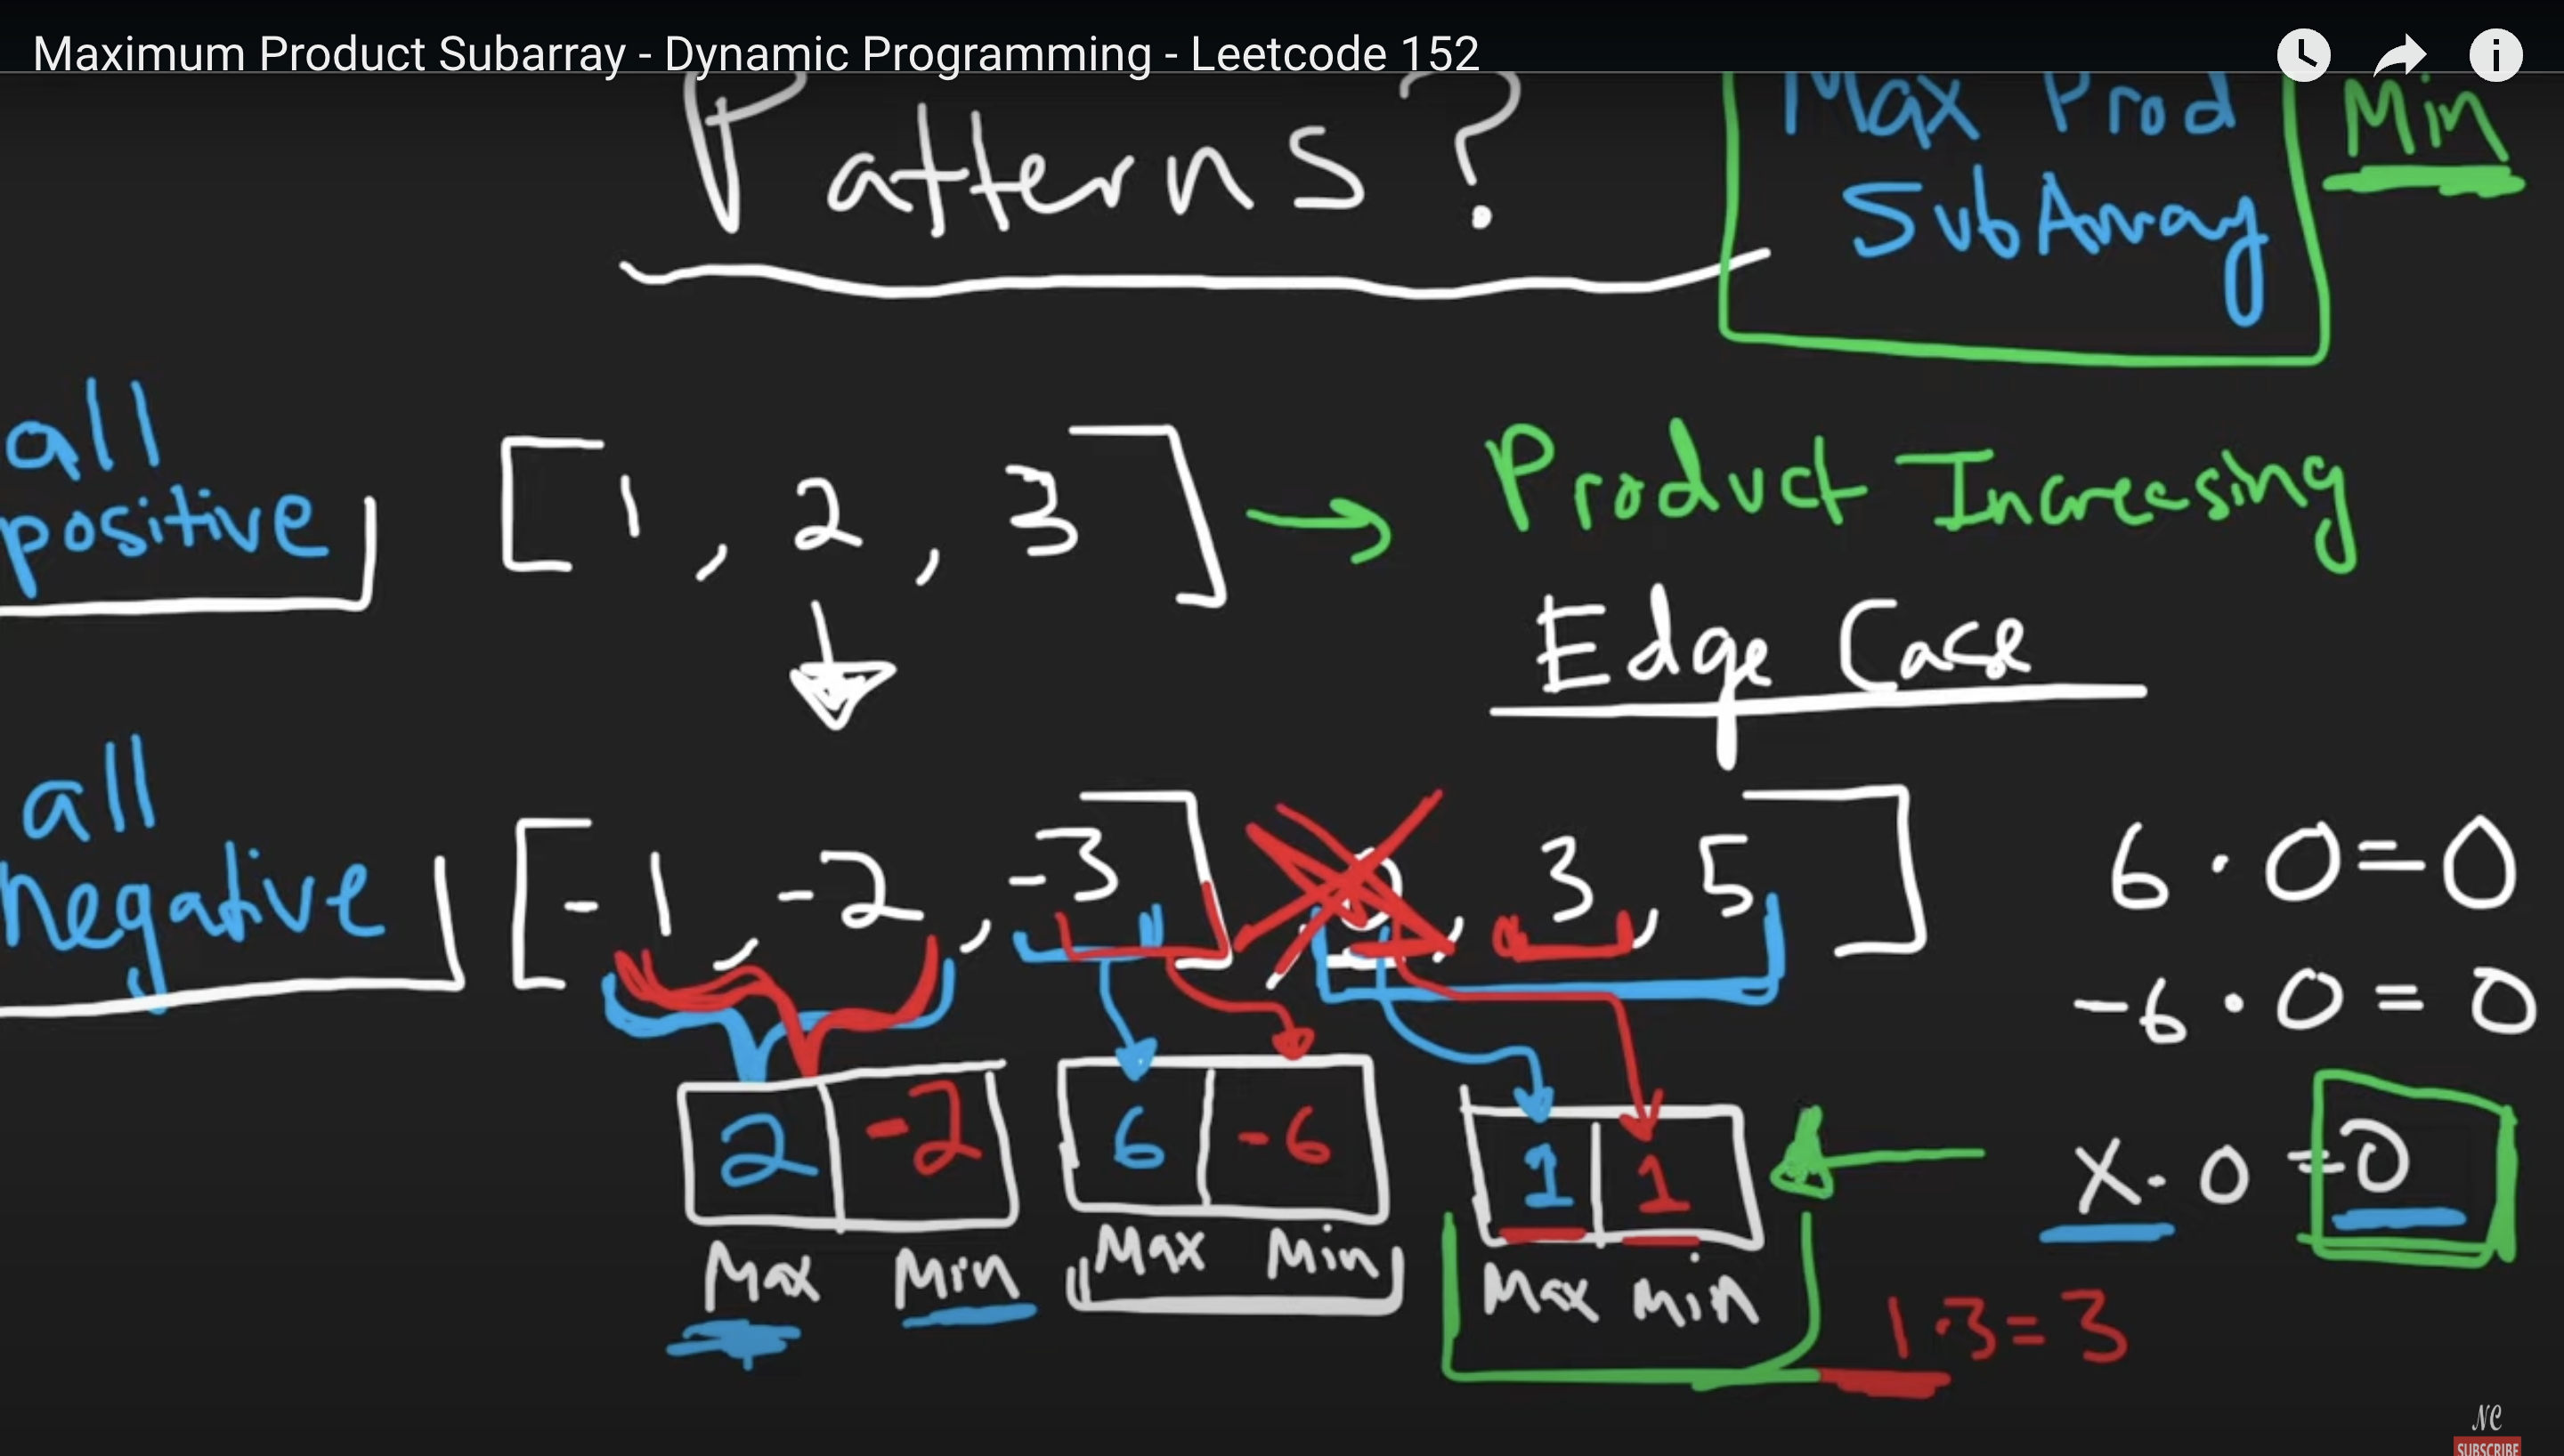 Maximum Product Subarray - Dynamic Programming - Leetcode 152
Patterns?
Max Prod
SubArray
Min
all
positive
[1, 2, 3] → Product Increasing
Edge Case
all
negative
[-1, -2, -3] 0, 3, 5]
6 · 0 = 0
-6 · 0 = 0
x · 0 = 0
2 -2
Max Min
6 -6
Max Min
1 1
Max Min
1·3=3
NC
SUBSCRIBE